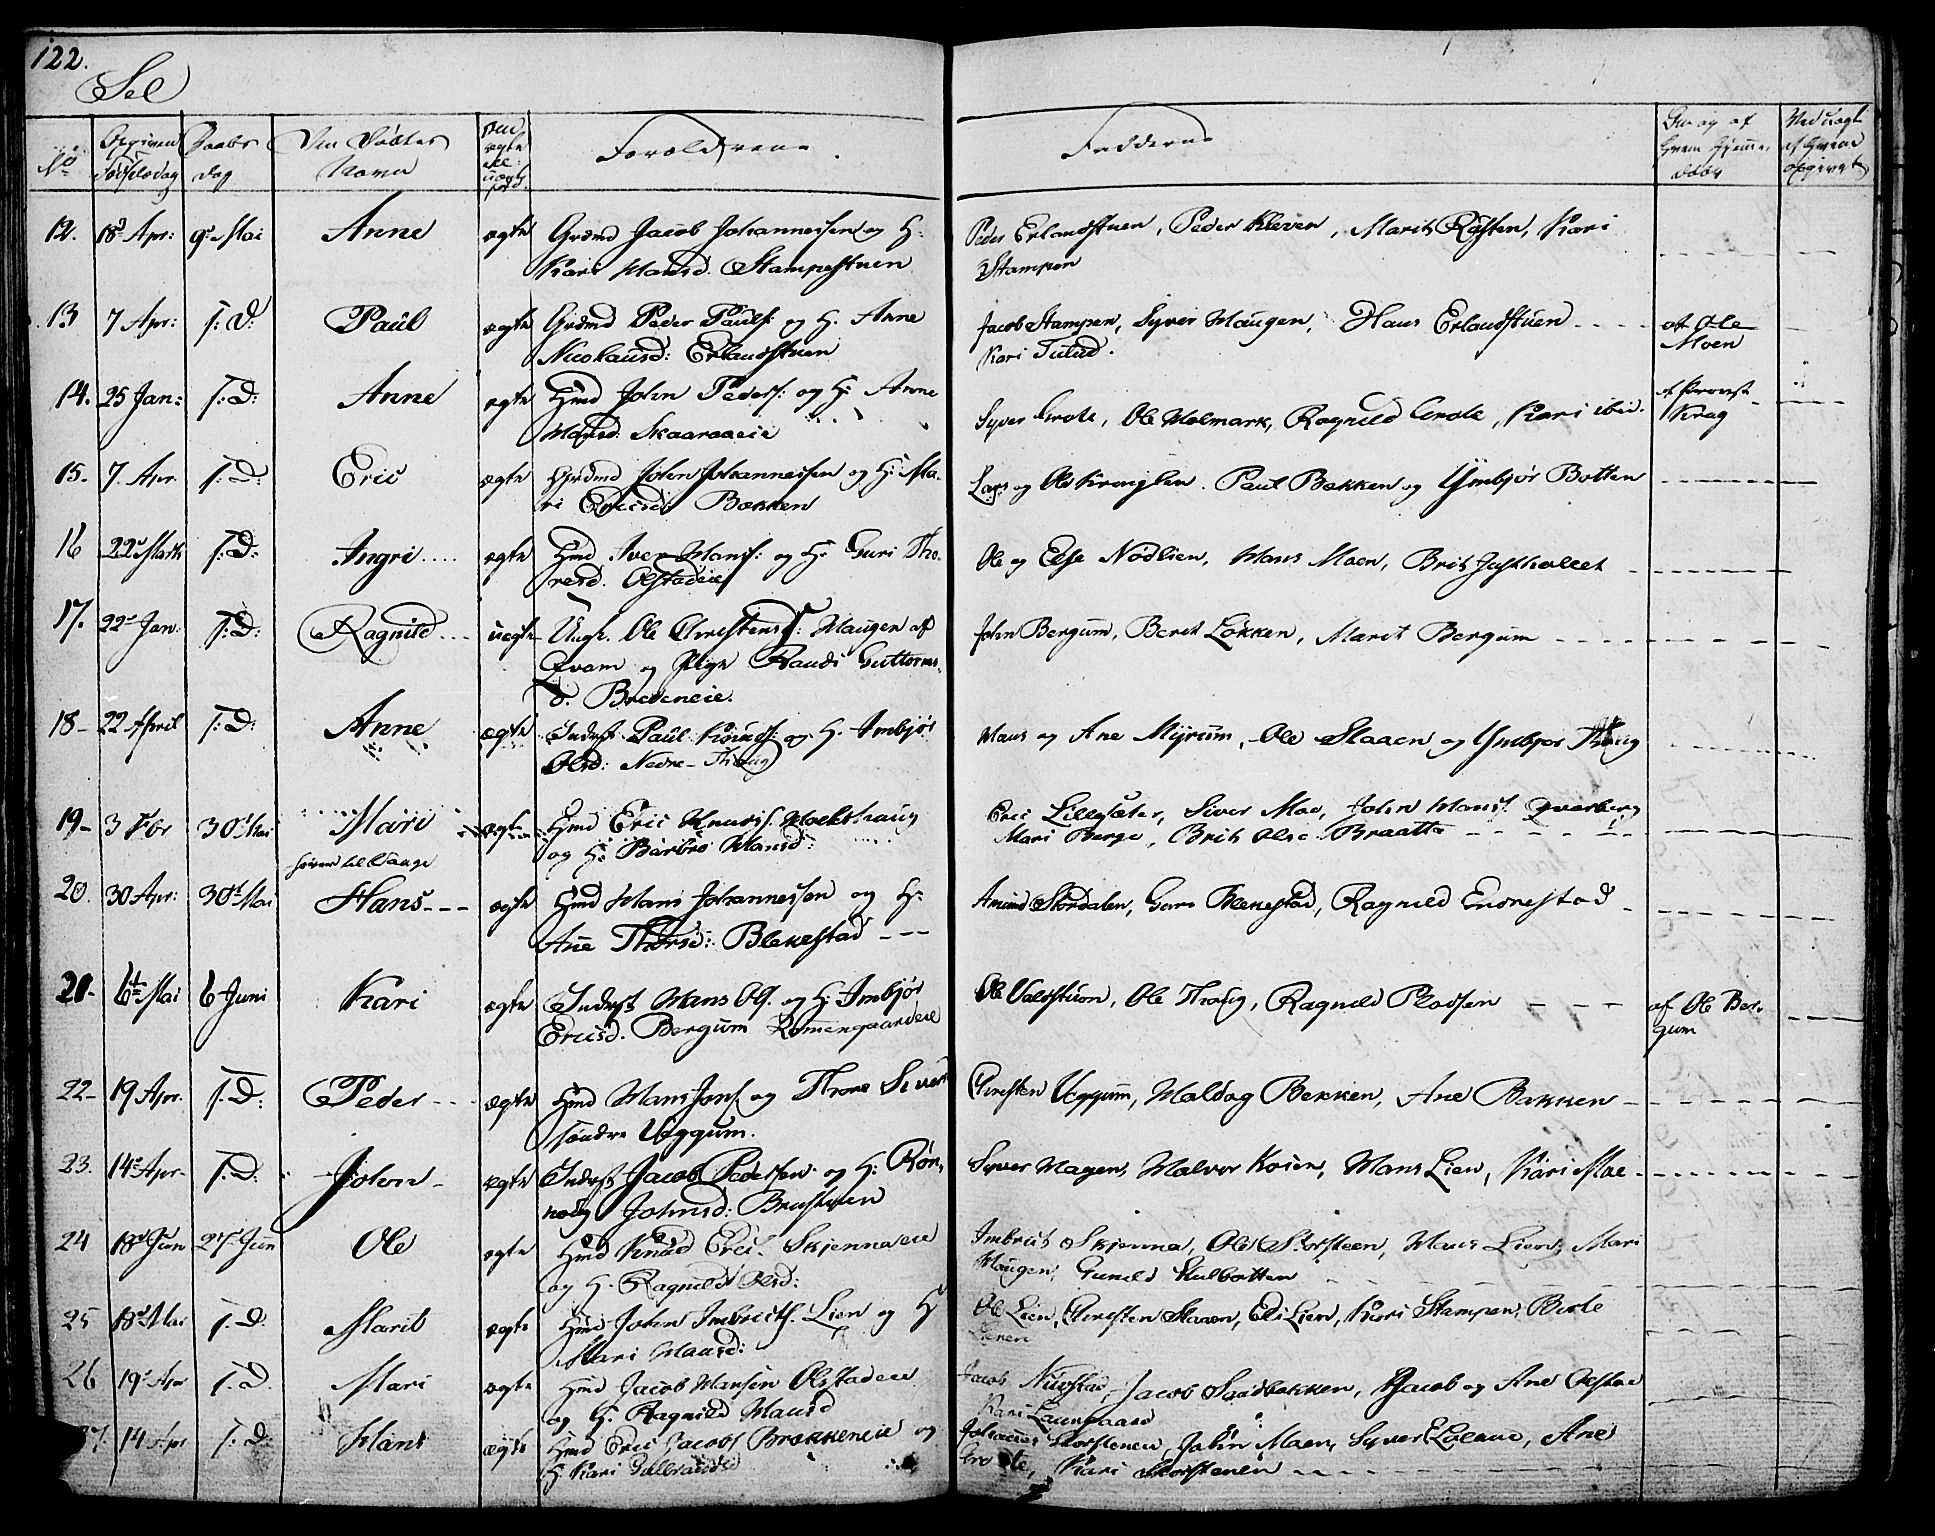 122.
Sel
No
Opgiven Fødselsdag
Daabs dag
Den Døbtes Navn
Om ægte ell: uægte født
Forældrene
Fadderne
Om og af Hvem hjemme døbt
12. 18d Apr: 9d Mai Anne ægte Grdmd Jacob Johannessen og H:
Kari Hansd. Stampestuen
Peder Erlandstuen, Peder Kleven, Marit Rusten, Kari
Stampen
13 7 Apr: S: D: Paul ægte Grdmd Peder Pauls: og H. Anne
Nicolausd: Erlandstuen
Jacob Stampen, Syver Haugen, Hans Erlandstuen
Kari Tulud.
af Ole
Moen
14. 25 Jan: S: D: Anne ægte Hmd John Peders: og H: Anne
Hansd: Skaaraaeie
Syver Grote, Ole Holmark, Ragnild Grote, Kari ibid.
af Provst
Krag
15. 7. Apr. S: D: Eric ægte Grdmd John Johannessen og H: Ma-
ri Ericsd: Bakken
Lars og Ole Kringlen. Paul Bakken og Ymbjør Botten
16 22d Marts S: D: Ingri ægte Hmd Iver Hans: og H: Guri Tho-
resd. Olstadeie
Ole og Else Nødlien, Hans Moen, Brit
17. 22d Jan: S: D: Ragnild uægte Ungk. Ole Christens: Haugen af
Qvam og Pige Randi Guttorms-
d. Bredeneie.
John Bergum, Berit Løkken, Marit Bergum
18- 22 April S: D: Anne ægte Inderst Paul Knuds: og H. Imbjør
Olsd: Nedre-Thoug
Hans og Ane Myrum, Ole Slaaen og Ymbjør Thoug
19- 3 Fbr 30d Mai Mari ægte Hmd Eric Knuds.
og H: Barbro Hansd:
Eric Lillesæter, Siver Moe, John Hans: Qverberg
Mari Berge, Brit Olse Braatte
20. 30 Apr: 30d Mai Hans ægte Hmd Hans Johannessen og H:
Ane Thorsd: Blekestad
Amund Stordalen, Guri Blekestad, Ragnild Endrestad
21- 6t Mai 6 Juni Kari ægte Inderst Hans Ols. og H: Imbjør
Ericsd. Bergum Romengaardeie
Ole Valdstuen, Ole Thoug, Ragnild Pladsen
af Ole Ber-
gum
22- 19 Apr. S: D: Peder ægte Hmd Hans Jons. og Thore Sivers
søndre Uggum.
Christen Uggum, Haldog Bekken, Ane Bakken
23. 14d Apr- S: D. John ægte Inderst Jacob Pedersen og H: Røn-
noug Johnsd: Brustuen
Syver Hagen, Halvor Koien, Hans Lien, Kari Moe
24 18d Juni 27 Juni Ole ægte Hmd Knud Erics. Skjennaeie
og H. Ragnild Olsd:
Imbrict Skjenna, Ole Storsteen, Hans Lien, Mari
Haugen, Gunild Kulbotten
25 18d Mai S. D. Marit ægte Hmd John Imbricts. Lien og H
Mari Hansd:
Ole Lien, Christen Slaaen, Eli Lien, Kari Stampen, Birte
Lienen
26 19d Apr S. D. Mari ægte Hmd Jacob Hansen Olstadeie
og H. Ragnild Hansd
Jacob Nustad, Jacob Sandbakken, Jacob og Ane Olstad
Kari Laurgaard
27. 14 Apr S: D: Hans ægte Hmd Eric Jacobs Brækkeneie og
H. Kari Gulbrandsd
Johannes Skorstenen, John Moen, Syver, Ane
Grote, Kari Skorstenen